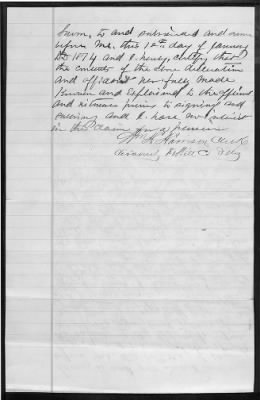 Sworn to and subscribed and sworn
before me this 12th day of January
AD 1874 and I hereby certify that
the contents of the above declaration
and affidavit were fully made
known and explained to the affiant
and witnesses prior to signing and
swearing and I have no interest
in the claim for pension
Wm H Harrison Clerk
County C